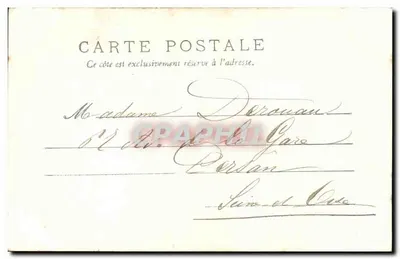 CARTE POSTALE
Ce côté est exclusivement réservé à l'adresse.
Madame Derouan
de la Gare
Persan
Seine et Oise